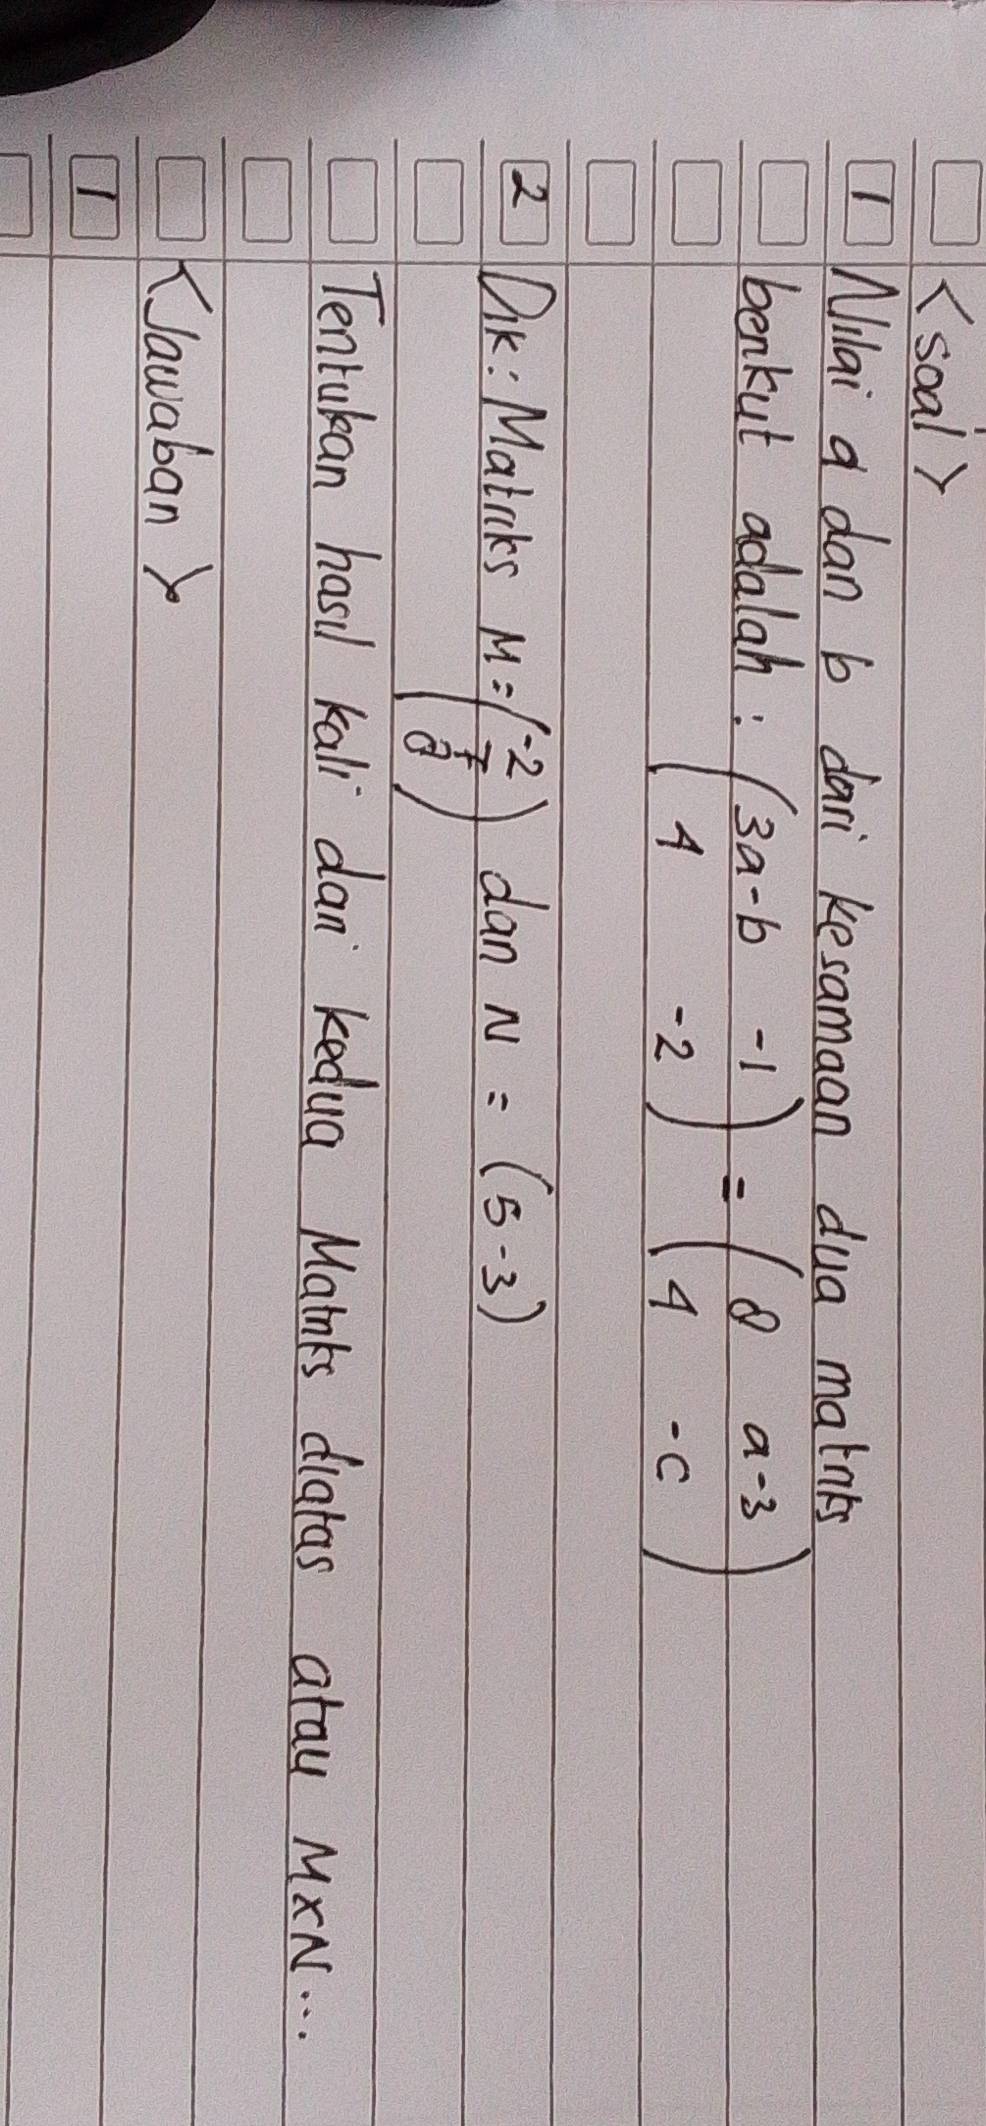 <soal>
1 Nilai a dan b dari kesamaan dua matriks
berikut adalah : (3a-b -1) = (8 a-3)
(4 -2) (4 -c)
2 Dik: Matriks M = (-2) dan N = (5 -3)
(7)
(8)
Tentukan hasil kali dari kedua Matriks diatas atau MxN...
<Jawaban>
1